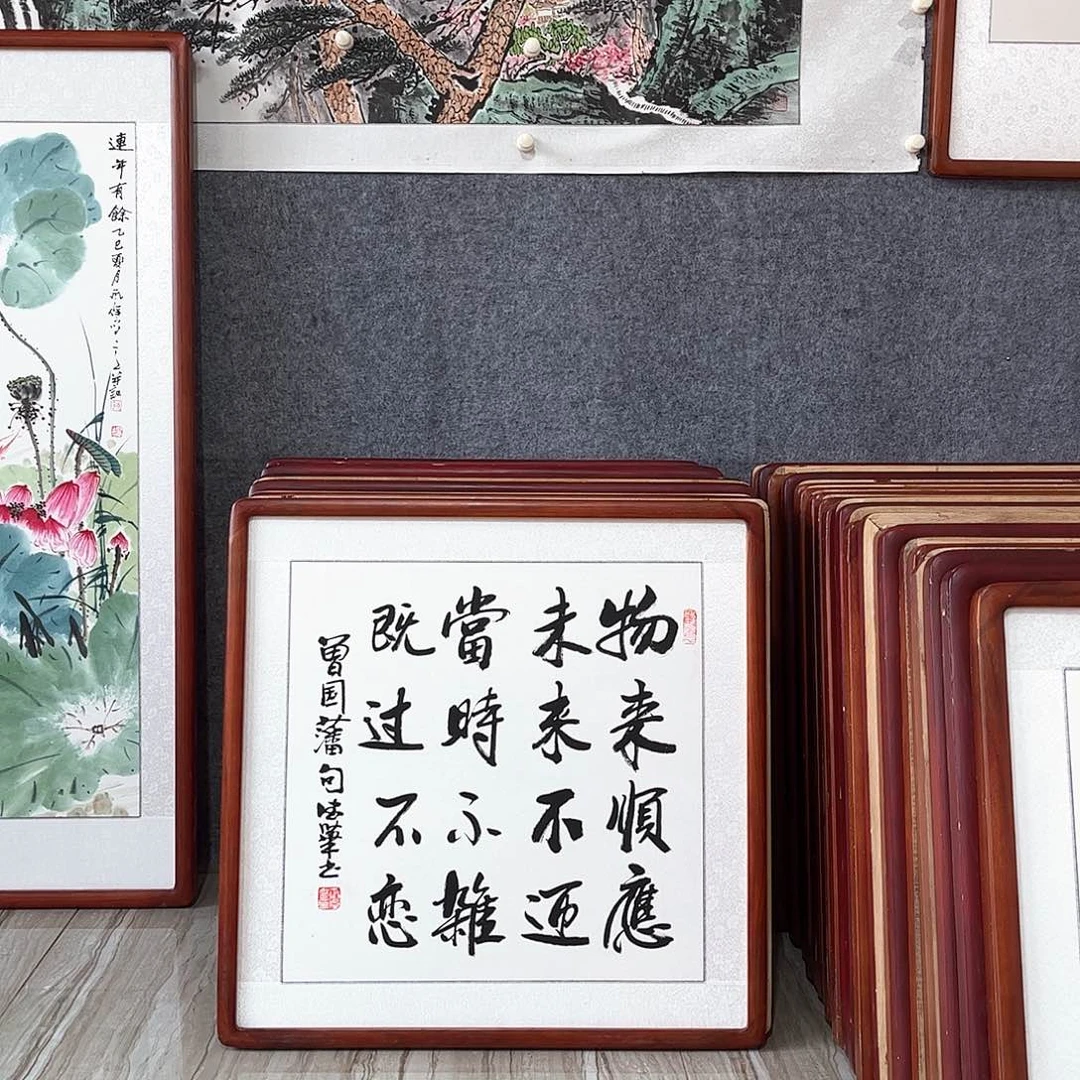 物来順應
未来不迎
當時不雜
既过不恋
曾国藩句法華书
連年有餘乙巳夏月